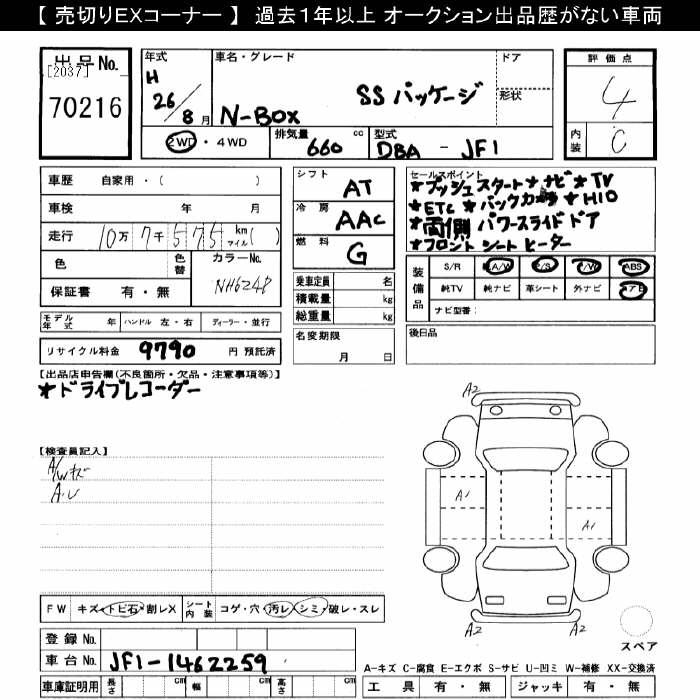 【 売切りEXコーナー 】 過去１年以上 オークション出品歴がない車両
出品No.
[2037]
70216
年式
H 26/8月
車名・グレード
N-BOX SSパッケージ
ドア
形状
2WD・4WD
排気量 660 cc
型式 DBA - JF1
評価点
4
内装 C
車歴 自家用・( )
車検 年 月
走行 10万7千575 km マイル( )
色 色替 カラーNo. NH624P
保証書 有・無
シフト AT
冷房 AAC
燃料 G
乗車定員 名
積載量 kg
総重量 kg
名変期限 月 日
セールスポイント
★プッシュスタート★ナビ★TV
★ETC★バックカメラ★HID
★両側パワースライドドア
★フロントシートヒーター
装備品 S/R A/W P/S P/W ABS
純TV 純ナビ 革シート 外ナビ エアB
ナビ型番:
後日品
モデル年式 年 ハンドル 左・右 ディーラー・並行
リサイクル料金 9790 円 預託済
【出品店申告欄(不良箇所・欠品・注意事項等)】
★ドライブレコーダー
【検査員記入】
A/Wキズ
A.U
A2
A1
A1
A2
A2
スペア
FW キズ・トビ石・割レX シート内装 コゲ・穴・汚レ・シミ・破レ・スレ
登録No.
車台No. JF1-1462259
車庫証明用 長さ cm 幅 cm 高さ cm
A-キズ C-腐食 E-エクボ S-サビ U-凹ミ W-補修 XX-交換済
工具 有・無 ジャッキ 有・無